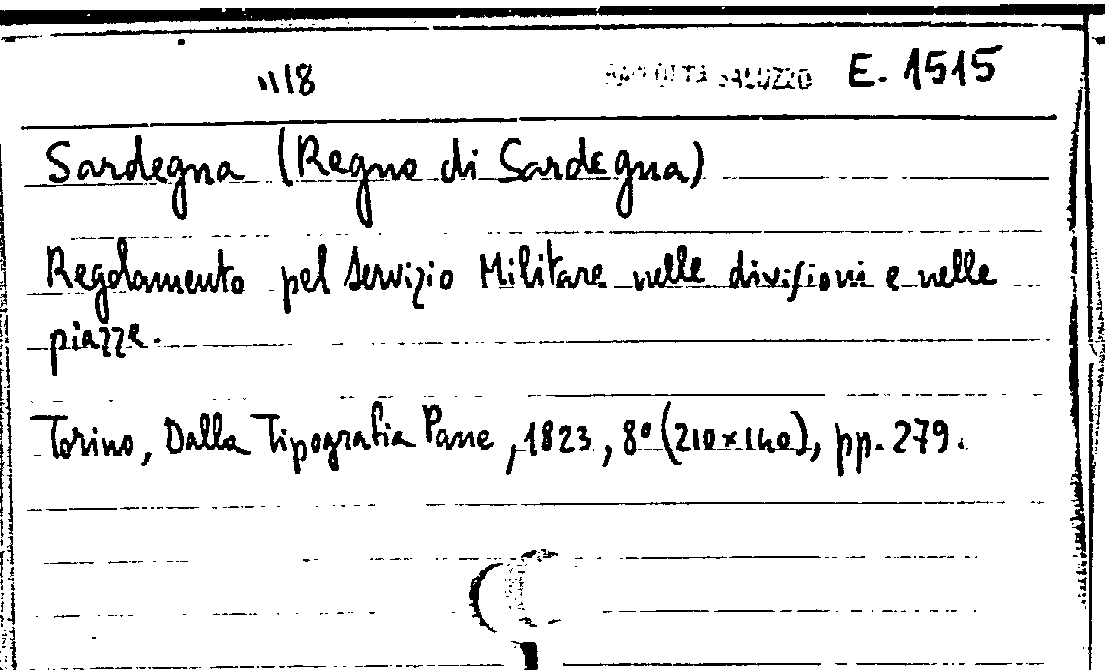 1118 RACCOLTA SALUZZO E. 1515
Sardegna (Regno di Sardegna)
Regolamento pel Servizio Militare nelle divisioni e nelle
piazze.
Torino, Dalla Tipografia Pane, 1823, 8° (210×140), pp. 279.